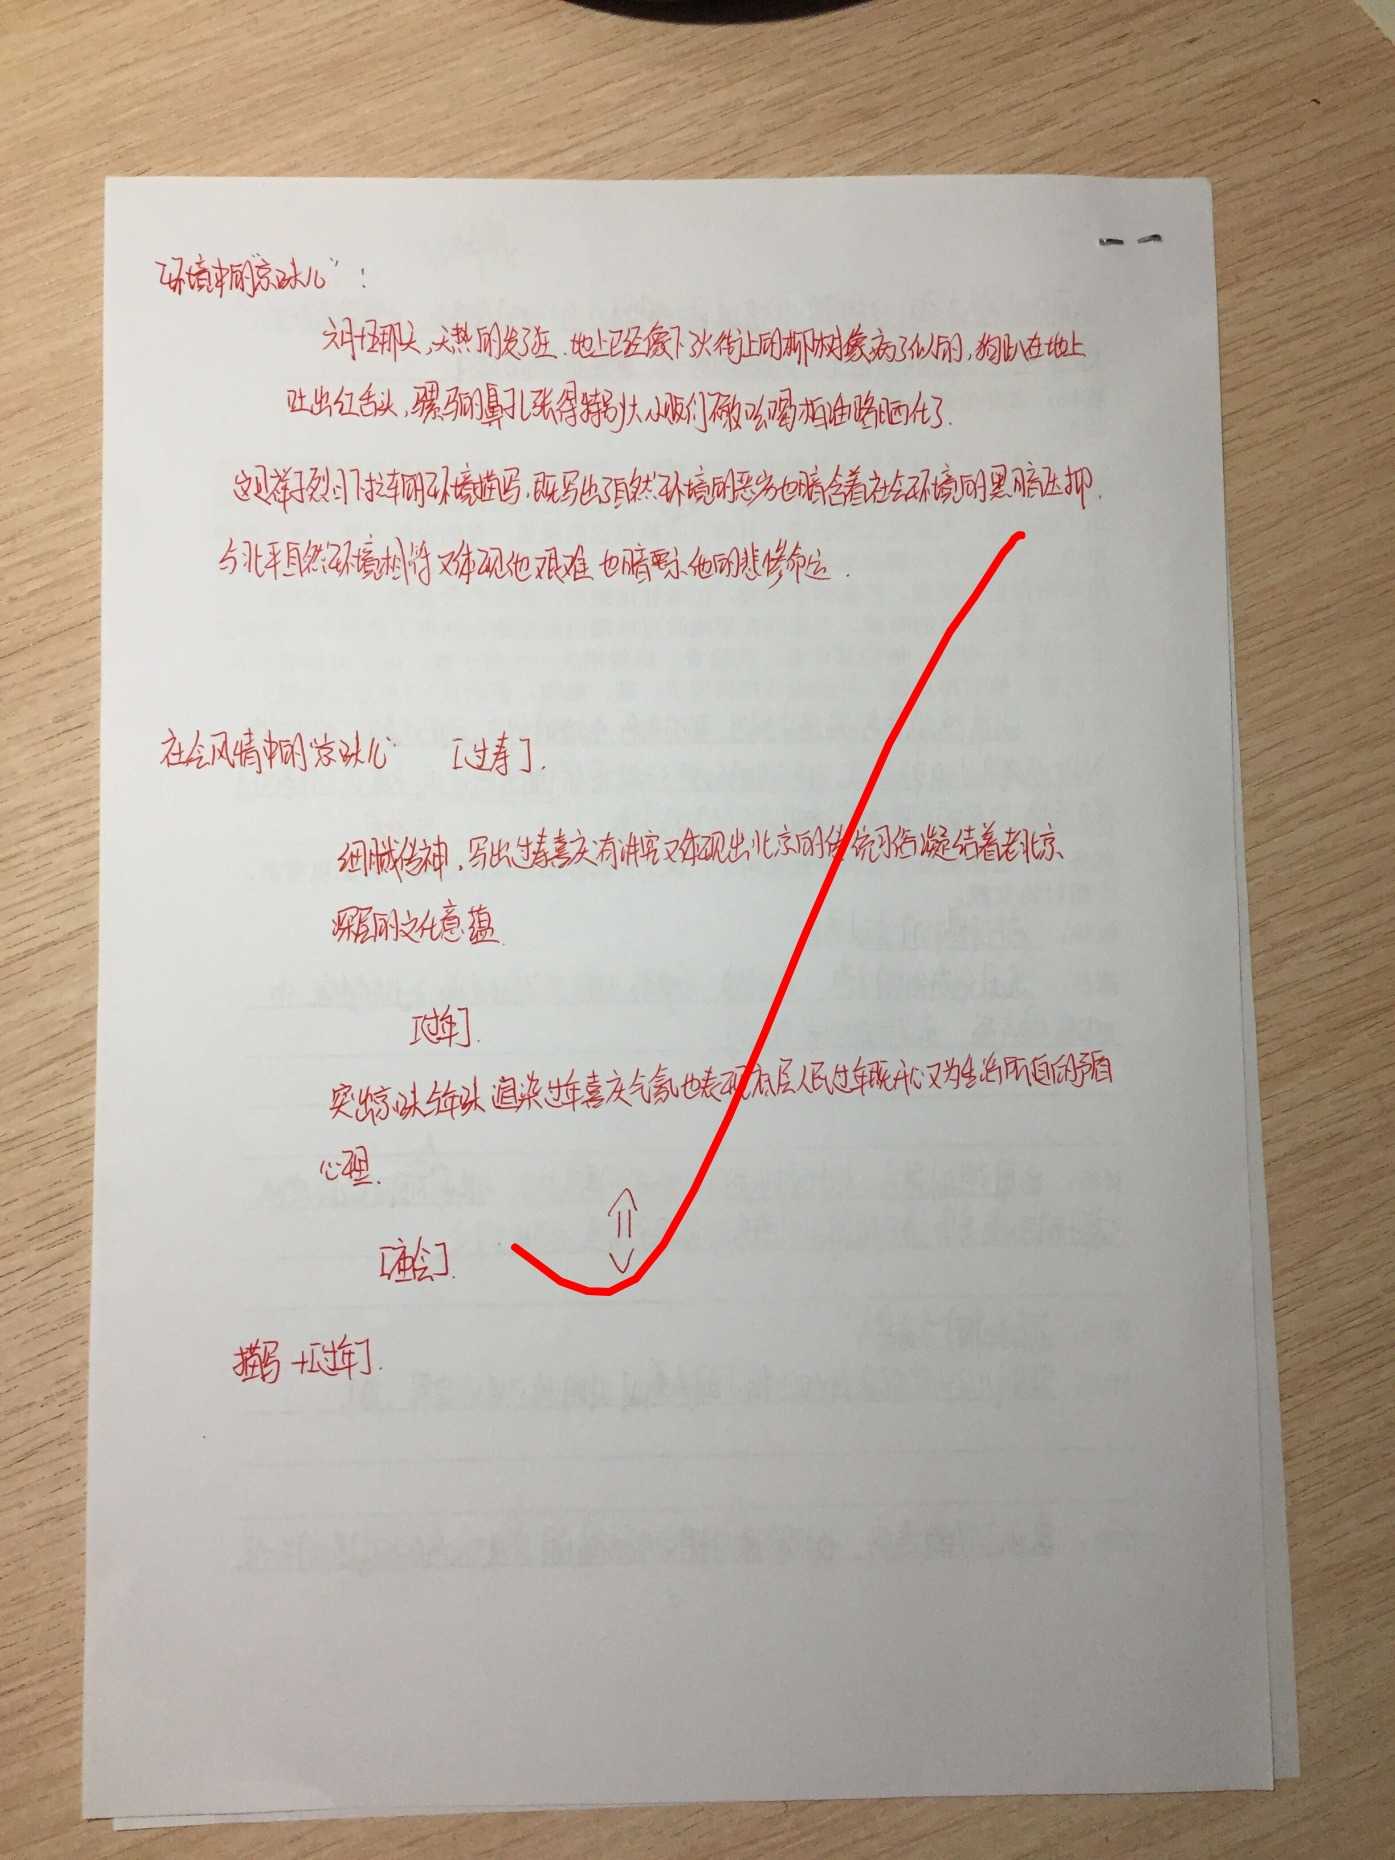 环境中的“京味儿”:
六月十五那天,天热的发了狂.地上已经像下火街上的柳树像病了似的,狗趴在地上
吐出红舌头,骡马的鼻孔张得特别大小贩们不敢吆喝柏油路晒化了.
这是祥子烈日下拉车的环境描写,既写出了自然环境的恶劣也暗含着社会环境的黑暗压抑.
与北平自然环境相符又体现他艰难也暗示他的悲惨命运.
社会风情中的“京味儿” [过寿].
细腻传神,写出过寿喜庆有讲究又体现出北京的传统习俗凝结着老北京
深层的文化意蕴.
[过年].
突出京味年味渲染过年喜庆气氛也表现底层人民过年既开心又为生活所迫的矛盾
心理.
[庙会].
描写+[过年].